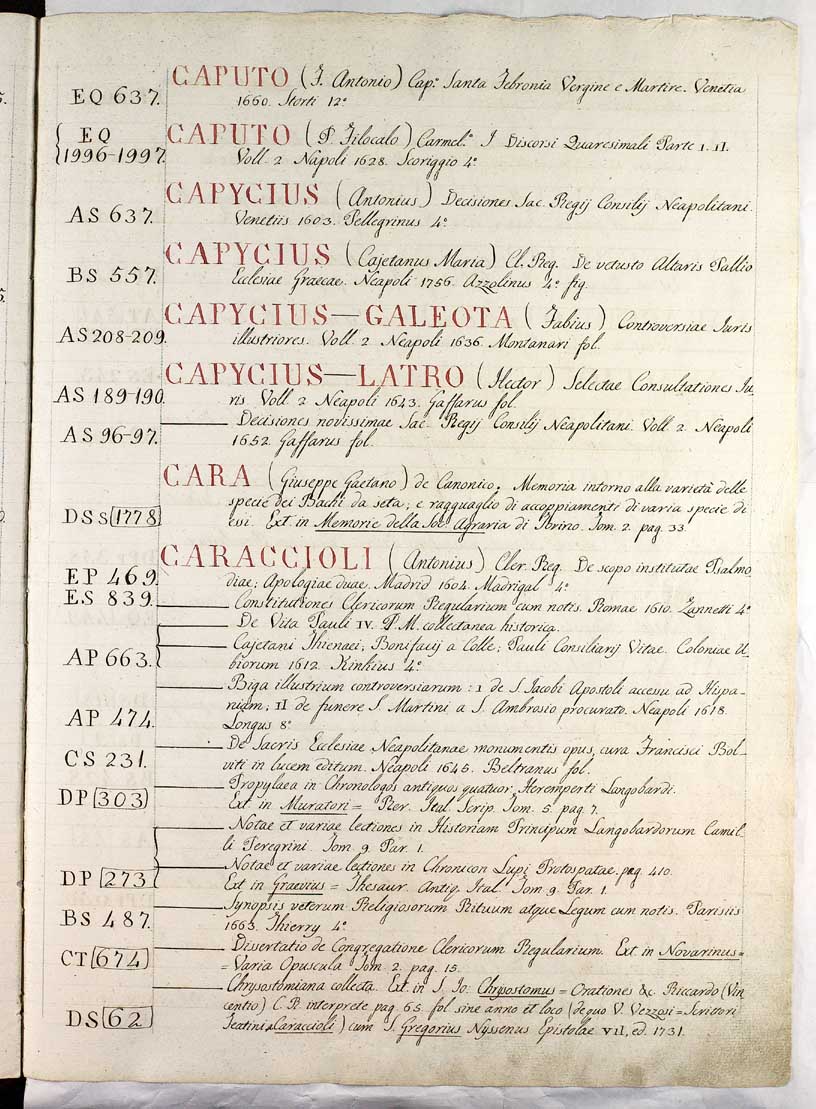 CAPUTO (F. Antonio) Cap.º Santa Febronia Vergine e Martire. Venetia
EQ 637. 1660. Storti 12º
EQ CAPUTO (P. Filocalo) Carmel.º I Discorsi Quaresimali Parte I. II.
1996-1997. Voll. 2 Napoli 1628. Scoriggio 4º
CAPYCIUS (Antonius) Decisiones Sac. Regij Consilij Neapolitani.
AS 637. Venetiis 1603. Pellegrinus 4º
CAPYCIUS (Cajetanus Maria) Cl. Reg. De vetusto Altaris Pallio
BS 557. Ecclesiae Graecae. Neapoli 1756. Azzolinus 4º fig.
CAPYCIUS—GALEOTA (Fabius) Controversiae Iuris
AS 208-209. illustriores. Voll. 2 Neapoli 1636. Montanari fol.
CAPYCIUS—LATRO (Hector) Selectae Consultationes Iu-
AS 189-190. ris Voll. 2 Neapoli 1643. Gaffarus fol.
——— Decisiones novissimae Sac. Regij Consilij Neapolitani. Voll. 2. Neapoli
AS 96-97. 1652. Gaffarus fol.
CARA (Giuseppe Gaetano) de Canonico. Memoria intorno alla varietà delle
specie dei Bachi da seta; e ragguaglio di accoppiamenti di varia specie di
DSs 1778 essi. Ext. in Memorie della Soc. Agraria di Torino. Tom. 2. pag. 33.
CARACCIOLI (Antonius) Cler. Reg. De scopo institutae Psalmo-
EP 469. diae; Apologiae duae. Madrid 1604. Madrigal 4º
ES 839. ——— Constitutiones Clericorum Regularium cum notis. Romae 1610. Zannetti 4º
——— De Vita Pauli IV. P. M. collectanea historica.
AP 663. ——— Cajetani Thienaei; Bonifacij a Colle; Pauli Consiliarij Vitae. Coloniae U-
biorum 1612. Kinkius 4º
——— Biga illustrium controversiarum: I de S. Jacobi Apostoli accessu ad Hispa-
niam; II de funere S. Martini a S. Ambrosio procurato. Neapoli 1618.
AP 474. Longus 8º
——— De Sacris Ecclesiae Neapolitanae monumentis opus, cura Francisci Bol-
CS 231. viti in lucem editum. Neapoli 1645. Beltranus fol.
——— Propylaea in Chronologos antiquos quatuor, Heremperti Langobardi.
DP 303 Ext. in Muratori = Rer. Ital. Scrip. Tom. 5. pag. 7.
——— Notae et variae lectiones in Historiam Principum Langobardorum Camil-
li Peregrini. Tom. 9. Par. 1.
——— Notae et variae lectiones in Chronicon Lupi Protospatae. pag. 410.
DP 273 Ext. in Graevius = Thesaur. Antiq. Ital. Tom. 9. Par. 1.
——— Synopsis veterum Religiosorum Rituum atque Legum cum notis. Parisiis
BS 487. 1663. Thierry 4º
——— Dissertatio de Congregatione Clericorum Regularium. Ext. in Novarinus =
CT 674 = Varia Opuscula Tom. 2. pag. 15.
——— Chrysostomiana collecta. Ext. in S. Io: Chrysostomus = Orationes &c. Riccardo (Vin-
centio) C. R. interprete pag. 65. fol. sine anno et loco (de quo V. Vezzosi = Scrittori
DS 62 Teatini = Caraccioli) cum S. Gregorius Nyssenus Epistolae VII, ed. 1731.